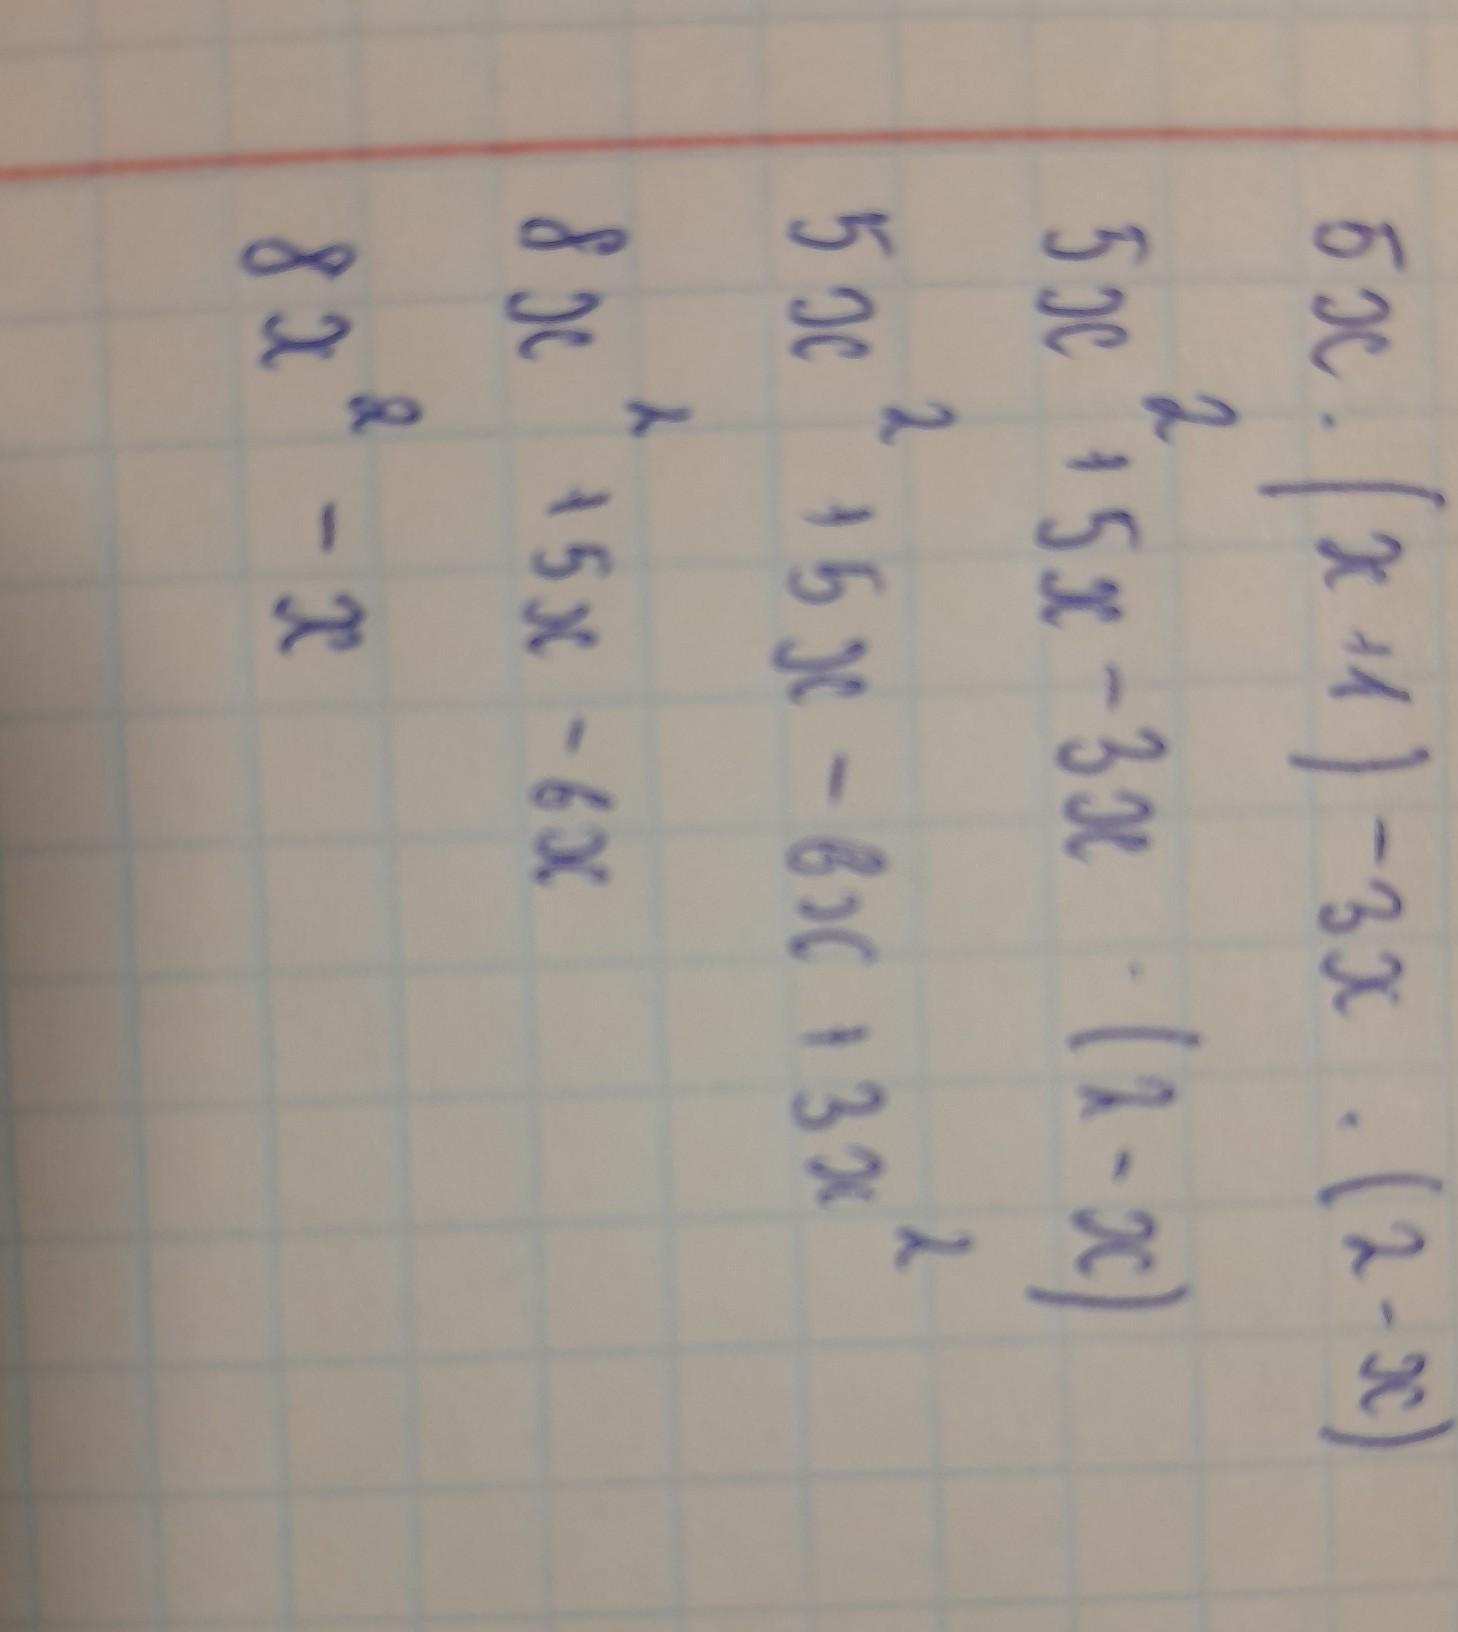 5x·(x+1)-3x·(2-x)
5x²+5x-3x·(2-x)
5x²+5x-6x+3x²
8x²+5x-6x
8x²-x